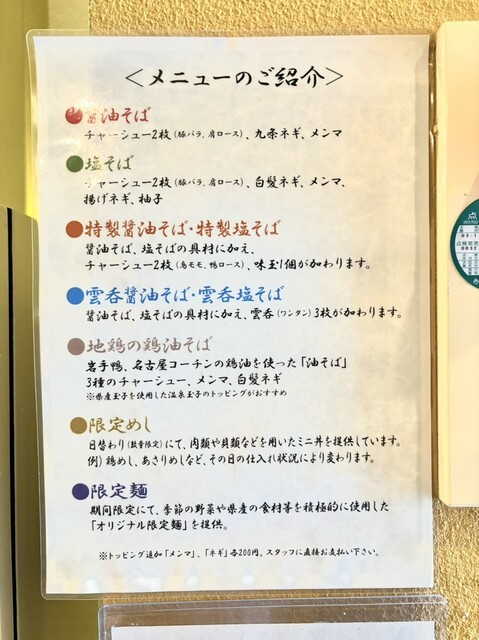 ＜メニューのご紹介＞
●醤油そば
チャーシュー2枚（豚バラ、肩ロース）、九条ネギ、メンマ
●塩そば
チャーシュー2枚（豚バラ、肩ロース）、白髪ネギ、メンマ、
揚げネギ、柚子
●特製醤油そば・特製塩そば
醤油そば、塩そばの具材に加え、
チャーシュー2枚（鳥モモ、鴨ロース）、味玉1個が加わります。
●雲呑醤油そば・雲呑塩そば
醤油そば、塩そばの具材に加え、雲呑（ワンタン）3枚が加わります。
●地鶏の鶏油そば
岩手鴨、名古屋コーチンの鶏油を使った「油そば」
3種のチャーシュー、メンマ、白髪ネギ
※県産玉子を使用した温泉玉子のトッピングがおすすめ
●限定めし
日替わり（数量限定）にて、肉類や貝類などを用いたミニ丼を提供しています。
例）鶏めし、あさりめしなど、その日の仕入れ状況により変わります。
●限定麺
期間限定にて、季節の野菜や県産の食材等を積極的に使用した
「オリジナル限定麺」を提供。
※トッピング追加「メンマ」、「ネギ」各200円。スタッフに直接お支払い下さい。
点